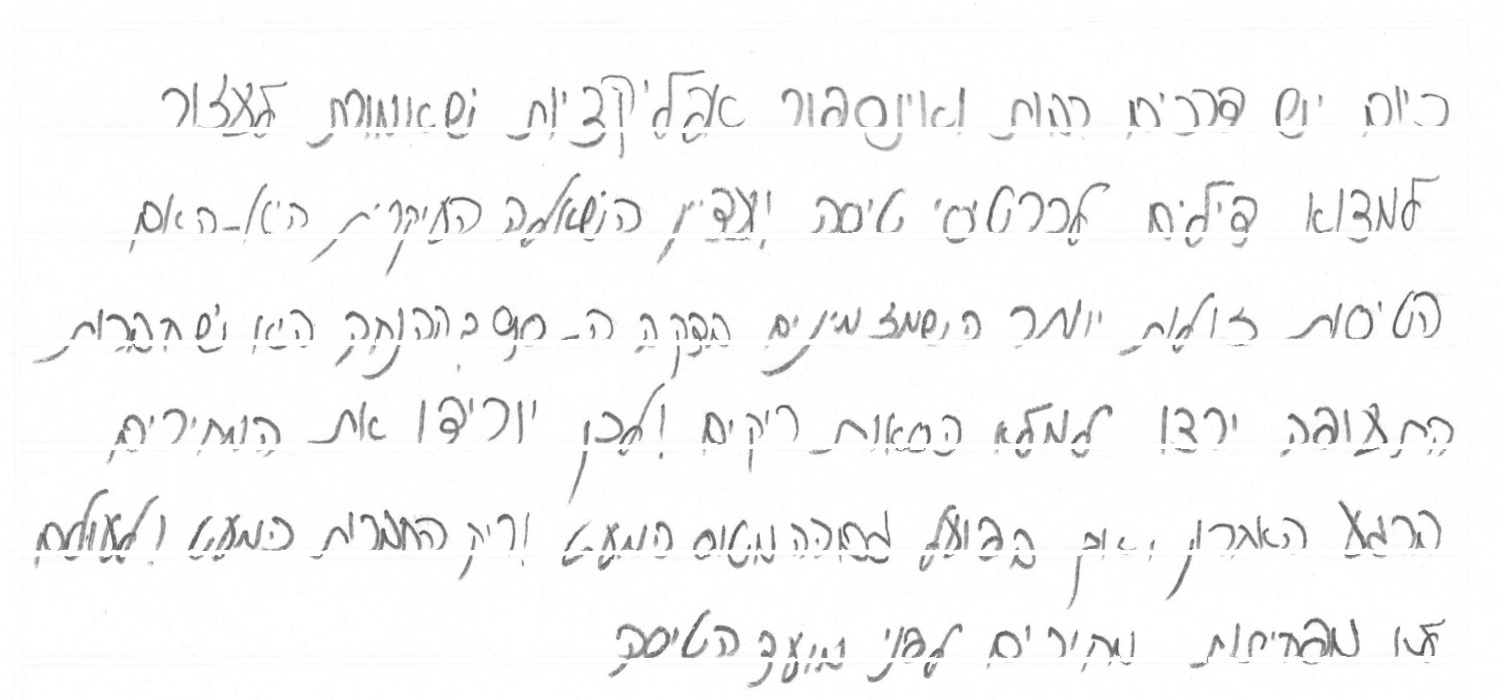 כיום יש דרכים רבות ואינספור אפליקציות שאומרות לעזור
למצוא דילים לכרטיסי טיסה ועדיין השאלה העיקרית היא - האם
הטיסות זולות יותר כשמזמינים בדקה ה- ההנחה היא שחברות
התעופה ירצו למלא כסאות ריקים ולכן יורידו את המחירים
ברגע האחרון, אך בפועל מטוס כמעט וריק החברות כמעט ולעולם
לא מפחיתות מחירים לפני מועד הטיסה